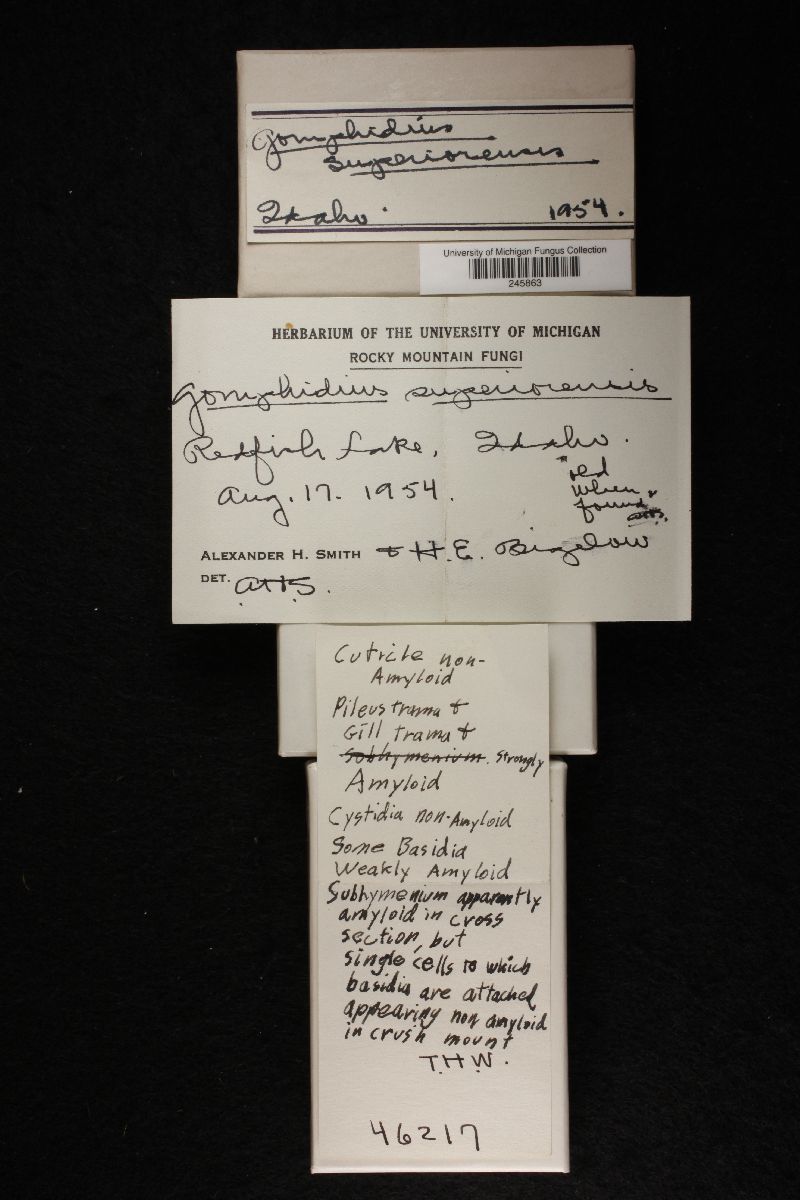 Gomphidius
superiorensis
Idaho. 1954.
University of Michigan Fungus Collection
245863
HERBARIUM OF THE UNIVERSITY OF MICHIGAN
ROCKY MOUNTAIN FUNGI
Gomphidius superiorensis
Redfish Lake, Idaho.
"old
when
found"
AHS.
Aug. 17. 1954.
ALEXANDER H. SMITH & H.E. Bigelow
DET. AHS.
Cuticle non-
Amyloid
Pileus trama &
Gill trama &
Subhymenium. Strongly
Amyloid
Cystidia non-Amyloid
Some Basidia
Weakly Amyloid
Subhymenium apparently
amyloid in cross
section, but
single cells to which
basidia are attached
appearing non amyloid
in crush mount
T.H.W.
46217